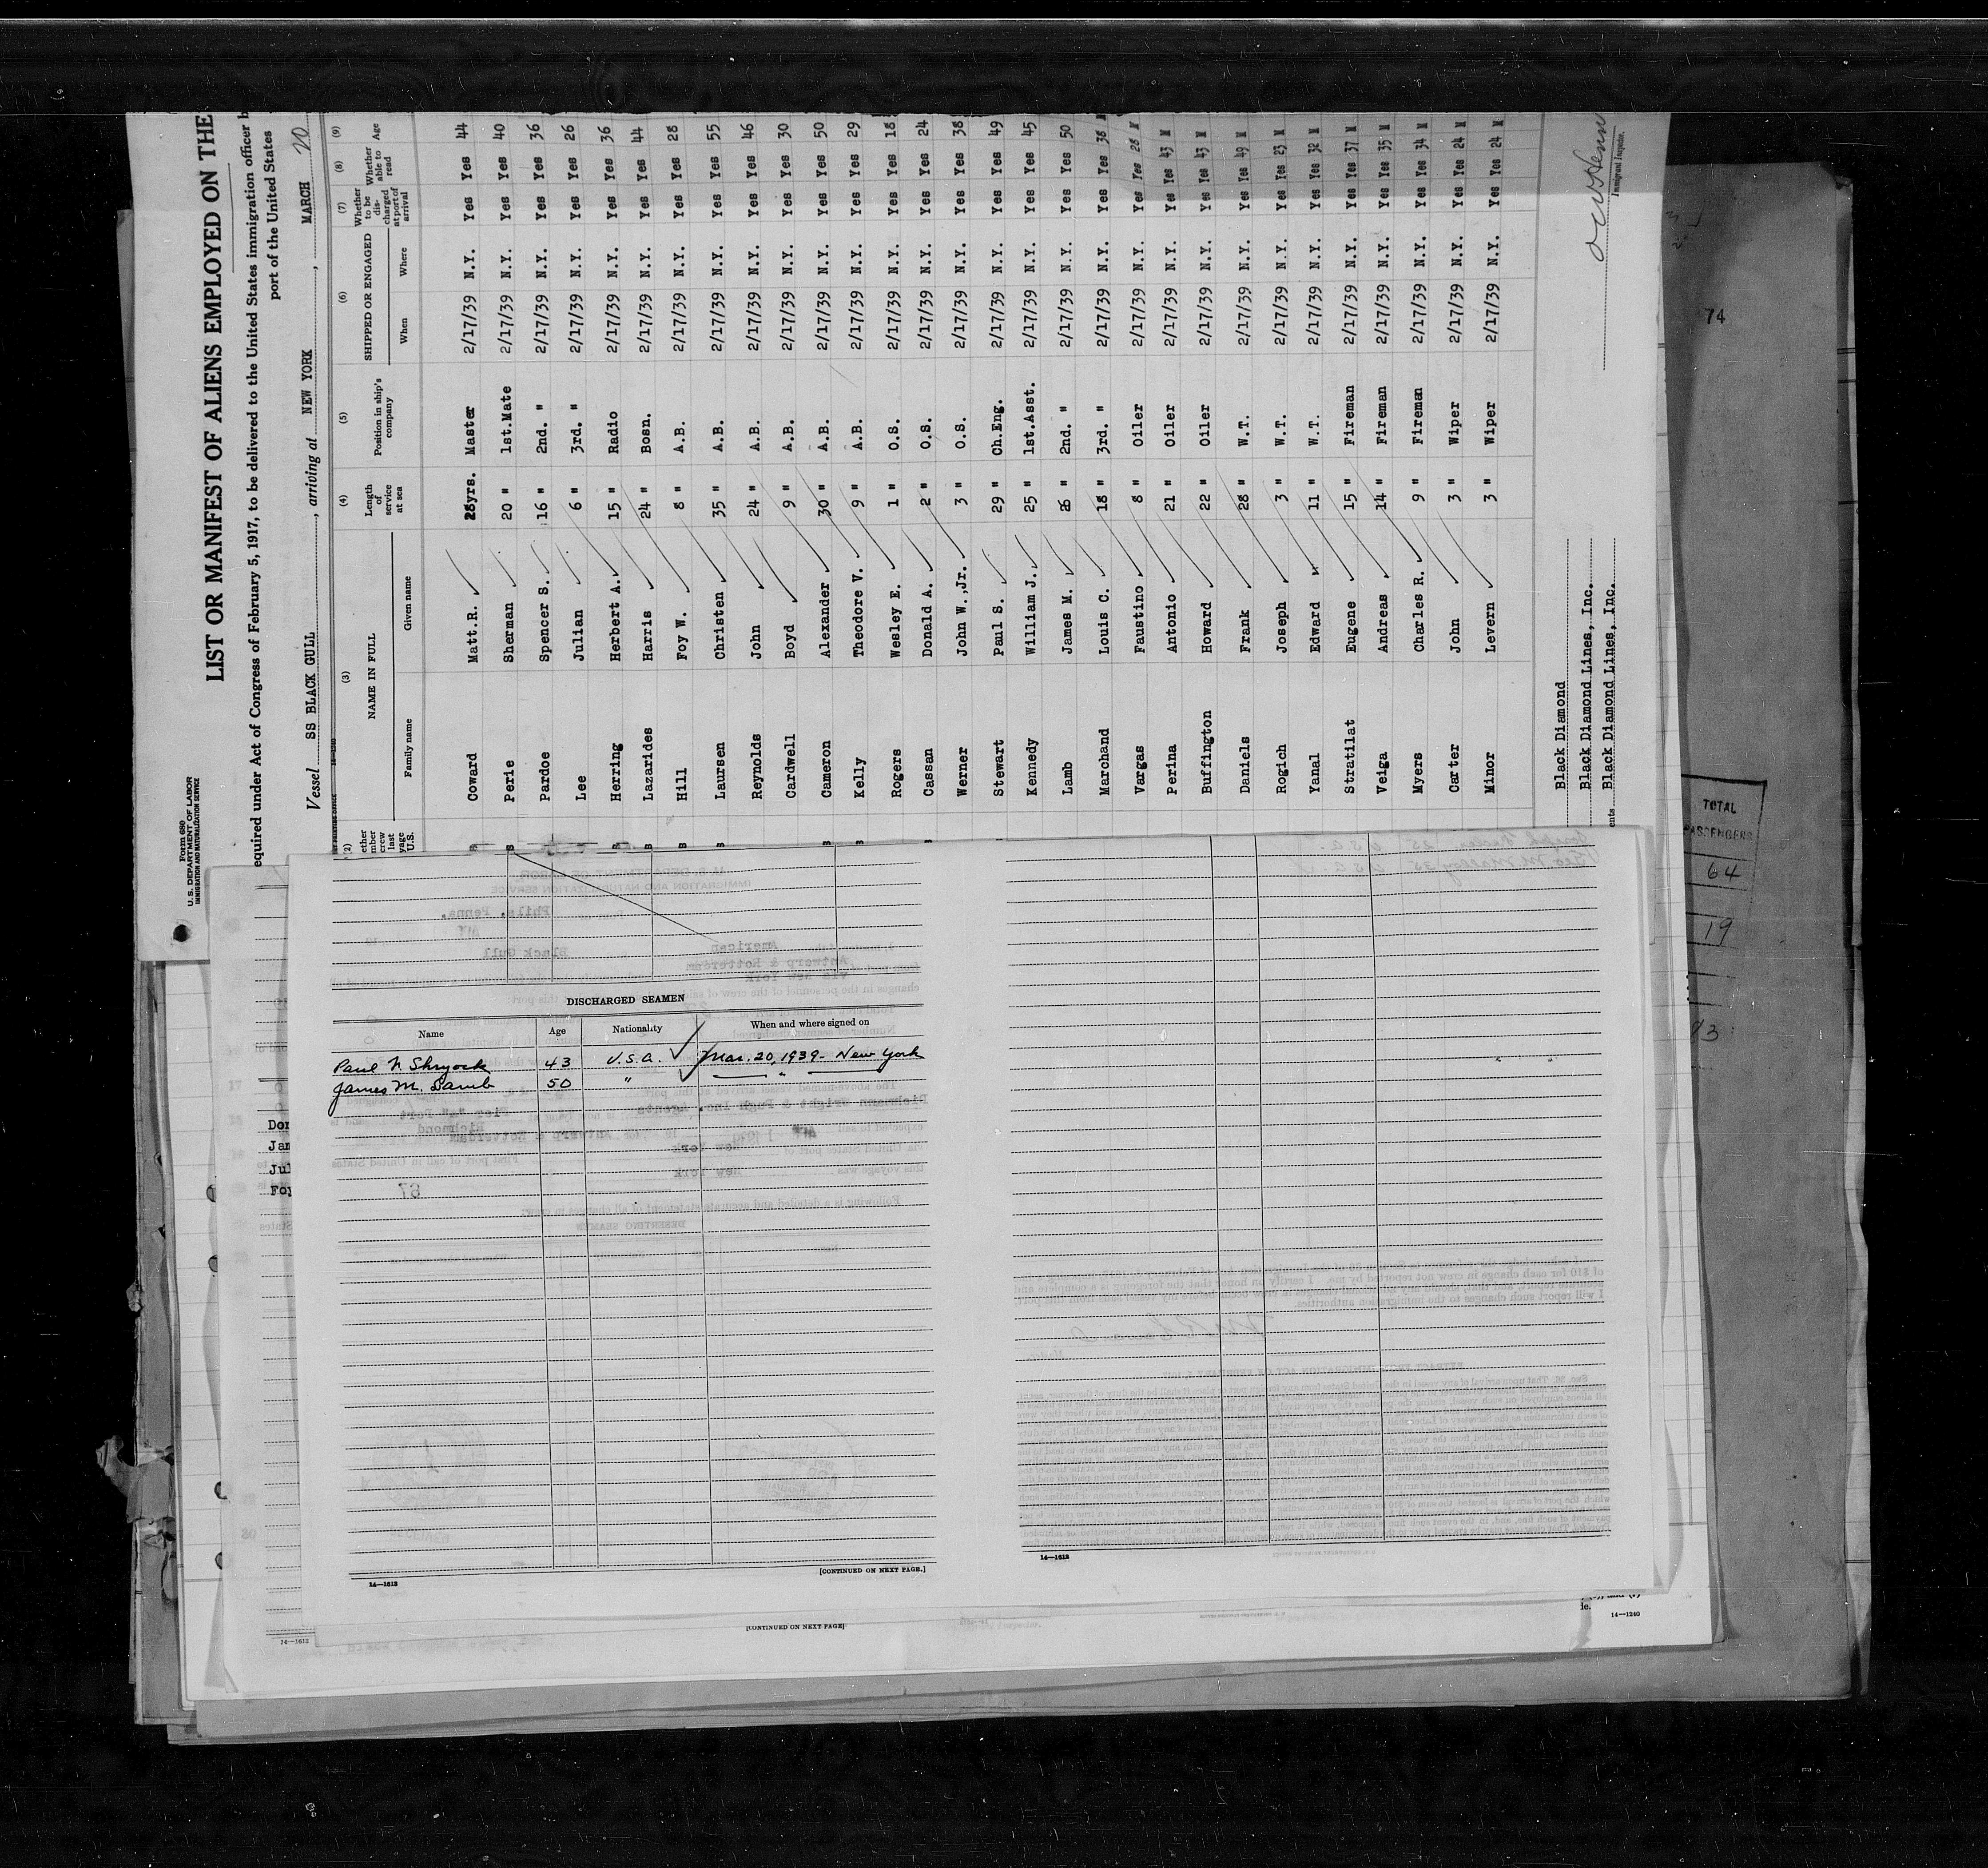 Form 680
U. S. DEPARTMENT OF LABOR
IMMIGRATION AND NATURALIZATION SERVICE
LIST OR MANIFEST OF ALIENS EMPLOYED ON THE
equired under Act of Congress of February 5, 1917, to be delivered to the United States immigration officer b
port of the United States
Vessel SS BLACK GULL, arriving at NEW YORK, MARCH 20
(2) (3) (4) (5) (6) (7) (8) (9)
ether mber crew last yage U.S.
NAME IN FULL
Family name Given name
Length of service at sea
Position in ship's company
SHIPPED OR ENGAGED
When Where
Whether to be discharged at port of arrival
Whether able to read
Age
Coward Matt.R. 28yrs. Master 2/17/39 N.Y. Yes Yes 44
Perie Sherman 20 " 1st.Mate 2/17/39 N.Y. Yes Yes 40
Pardoe Spencer S. 16 " 2nd. " 2/17/39 N.Y. Yes Yes 36
Lee Julian 6 " 3rd. " 2/17/39 N.Y. Yes Yes 26
Herring Herbert A. 15 " Radio 2/17/39 N.Y. Yes Yes 36
Lazarides Harris 24 " Bosn. 2/17/39 N.Y. Yes Yes 44
Hill Foy W. 8 " A.B. 2/17/39 N.Y. Yes Yes 28
Laursen Christen 35 " A.B. 2/17/39 N.Y. Yes Yes 55
Reynolds John 24 " A.B. 2/17/39 N.Y. Yes Yes 46
Cardwell Boyd 9 " A.B. 2/17/39 N.Y. Yes Yes 30
Cameron Alexander 30 " A.B. 2/17/39 N.Y. Yes Yes 50
Kelly Theodore V. 9 " A.B. 2/17/39 N.Y. Yes Yes 29
Rogers Wesley E. 1 " O.S. 2/17/39 N.Y. Yes Yes 18
Cassan Donald A. 2 " O.S. 2/17/39 N.Y. Yes Yes 24
Werner John W.,Jr. 3 " O.S. 2/17/39 N.Y. Yes Yes 38
Stewart Paul S. 29 " Ch.Eng. 2/17/39 N.Y. Yes Yes 49
Kennedy William J. 25 " 1st.Asst. 2/17/39 N.Y. Yes Yes 45
Lamb James M. 26 " 2nd. " 2/17/39 N.Y. Yes Yes 50
Marchand Louis C. 18 " 3rd. " 2/17/39 N.Y. Yes Yes 38 M
Vargas Faustino 8 " Oiler 2/17/39 N.Y. Yes Yes 28 M
Perina Antonio 21 " Oiler 2/17/39 N.Y. Yes Yes 43 M
Buffington Howard 22 " Oiler 2/17/39 N.Y. Yes Yes 43 M
Daniels Frank 28 " W.T. 2/17/39 N.Y. Yes Yes 49 M
Rogich Joseph 3 " W.T. 2/17/39 N.Y. Yes Yes 23 M
Yanal Edward 11 " W.T. 2/17/39 N.Y. Yes Yes 32 M
Stratilat Eugene 15 " Fireman 2/17/39 N.Y. Yes Yes 37 M
Veiga Andreas 14 " Fireman 2/17/39 N.Y. Yes Yes 35 M
Myers Charles R. 9 " Fireman 2/17/39 N.Y. Yes Yes 34 M
Carter John 3 " Wiper 2/17/39 N.Y. Yes Yes 24 M
Minor Levern 3 " Wiper 2/17/39 N.Y. Yes Yes 24 M
Black Diamond
Black Diamond Lines, Inc.
ents Black Diamond Lines, Inc.
Immigrant Inspector.
74
TOTAL
PASSENGERS
64
19
DISCHARGED SEAMEN
Name Age Nationality When and where signed on
Paul N. Shryock 43 U.S.A. Mar. 20, 1939 - New York
James M. Lamb 50 " "
Don
Jam
Jul
Foy
14—1613
[CONTINUED ON NEXT PAGE.]
14—1613
14—1613
[CONTINUED ON NEXT PAGE]
14—1240